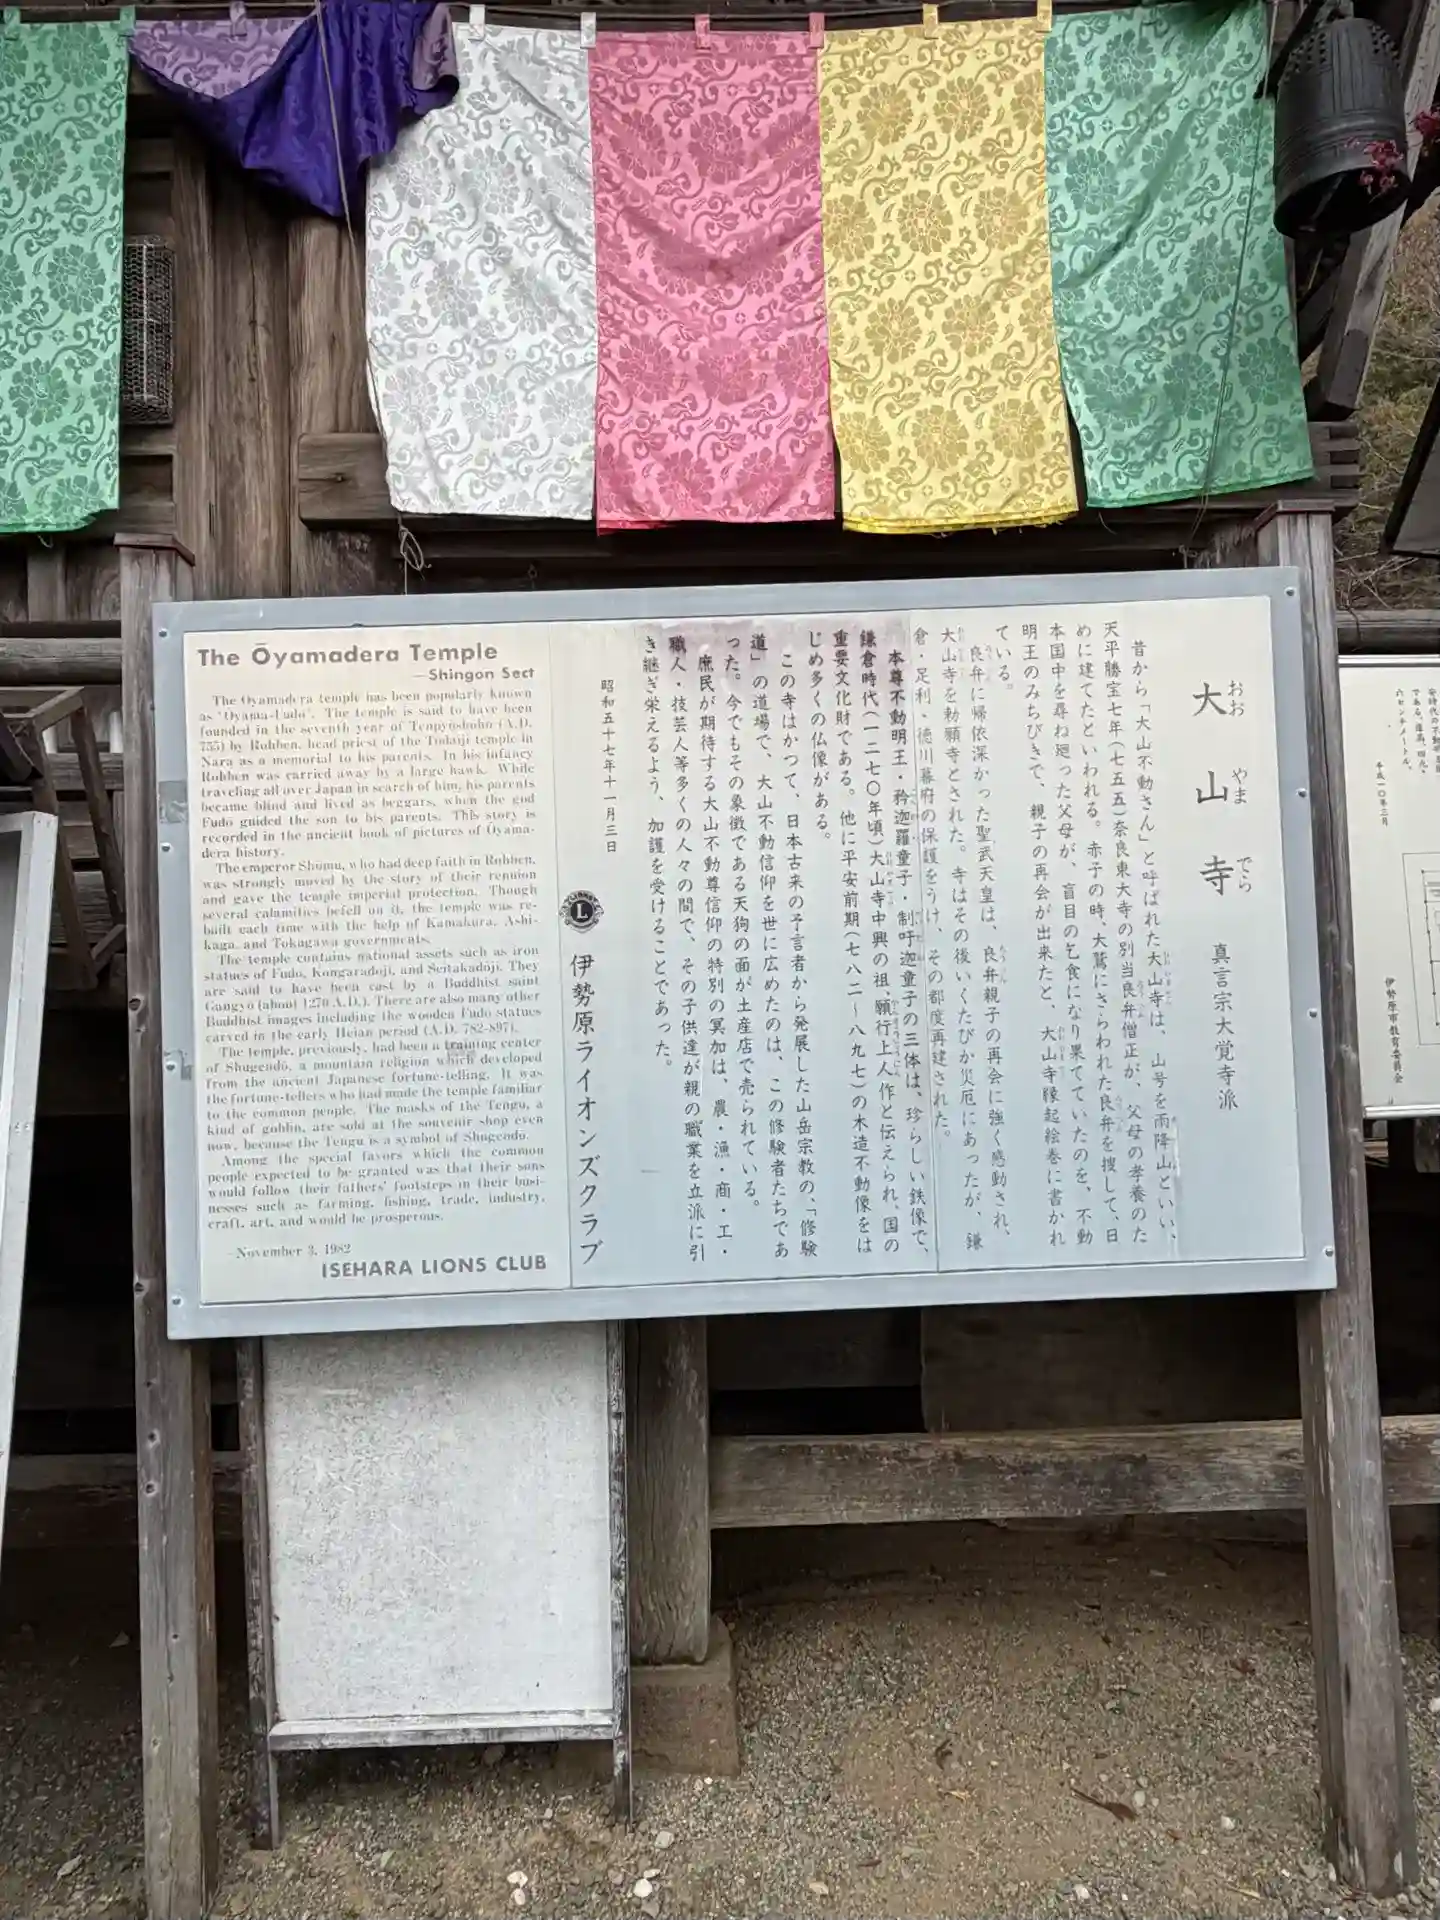 The Ōyamadera Temple
—Shingon Sect
The Oyamadera temple has been popularly known
as "Oyama-Fudo". The temple is said to have been
founded in the seventh year of Tenpyoshoho (A.D.
755) by Rohben, head priest of the Todaiji temple in
Nara as a memorial to his parents. In his infancy
Rohben was carried away by a large hawk. While
traveling all over Japan in search of him, his parents
became blind and lived as beggars, when the god
Fudo guided the son to his parents. This story is
recorded in the ancient book of pictures of Oyama-
dera history.
The emperor Shōmu, who had deep faith in Rohben,
was strongly moved by the story of their reunion
and gave the temple imperial protection. Though
several calamities befell on it, the temple was re-
built each time with the help of Kamakura, Ashi-
kaga, and Tokugawa governments.
The temple contains national assets such as iron
statues of Fudo, Kongaradoji, and Seitakadōji. They
are said to have been cast by a Buddhist saint
Gangyō (about 1270 A.D.). There are also many other
Buddhist images including the wooden Fudo statues
carved in the early Heian period (A.D. 782-897).
The temple, previously, had been a training center
of Shugendō, a mountain religion which developed
from the ancient Japanese fortune-telling. It was
the fortune-tellers who had made the temple familiar
to the common people. The masks of the Tengu, a
kind of goblin, are sold at the souvenir shop even
now, because the Tengu is a symbol of Shugendō.
Among the special favors which the common
people expected to be granted was that their sons
would follow their fathers' footsteps in their busi-
nesses such as farming, fishing, trade, industry,
craft, art, and would be prosperous.
—November 3, 1982
ISEHARA LIONS CLUB
大山寺
おおやまでら
真言宗大覚寺派
昔から「大山不動さん」と呼ばれた大山寺は、山号を雨降山といい、
天平勝宝七年(七五五)奈良東大寺の別当良弁僧正が、父母の孝養のた
めに建てたといわれる。赤子の時、大鷲にさらわれた良弁を捜して、日
本国中を尋ね廻った父母が、盲目の乞食になり果てていたのを、不動
明王のみちびきで、親子の再会が出来たと、大山寺縁起絵巻に書かれ
ている。
良弁に帰依深かった聖武天皇は、良弁親子の再会に強く感動され、
大山寺を勅願寺とされた。寺はその後いくたびか災厄にあったが、鎌
倉・足利・徳川幕府の保護をうけ、その都度再建された。
本尊不動明王・矜迦羅童子・制吒迦童子の三体は、珍らしい鉄像で、
鎌倉時代(一二七〇年頃)大山寺中興の祖、願行上人作と伝えられ、国の
重要文化財である。他に平安前期(七八二〜八九七)の木造不動像をは
じめ多くの仏像がある。
この寺はかつて、日本古来の予言者から発展した山岳宗教の、「修験
道」の道場で、大山不動信仰を世に広めたのは、この修験者たちであ
った。今でもその象徴である天狗の面が土産店で売られている。
庶民が期待する大山不動尊信仰の特別の冥加は、農・漁・商・工・
職人・技芸人等多くの人々の間で、その子供達が親の職業を立派に引
き継ぎ栄えるよう、加護を受けることであった。
昭和五十七年十一月三日
L
伊勢原ライオンズクラブ
である。
六センチメートル。
平成一〇年三月
伊勢原市教育委員会